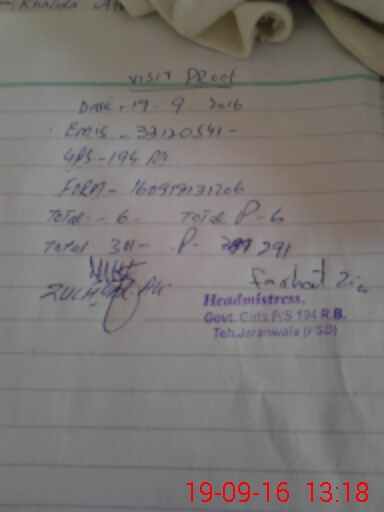 Khalida
VISIT PROOF
Date - 19 - 9 2016
EMIS - 33120541 -
GPS - 194 RB
FORM - 160919131206
Total - 6 Total P - 6
Total 311 - P - 291
Farhat Zia
Headmistress.
Govt. Girls P/S 194 R.B.
Teh. Jaranwala (FSD)
19-09-16 13:18